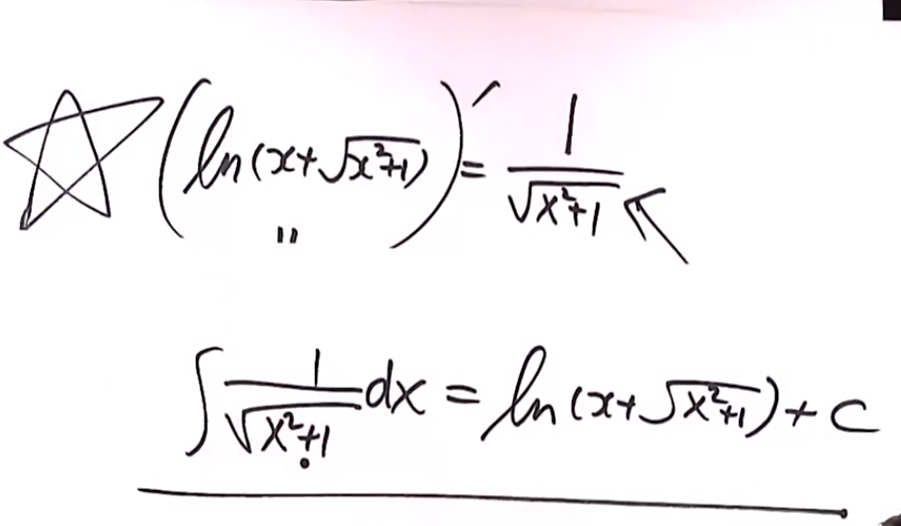 (ln(x+√(x²+1)))′ = 1/√(x²+1)
"
∫ 1/√(x²+1) dx = ln(x+√(x²+1)) + c